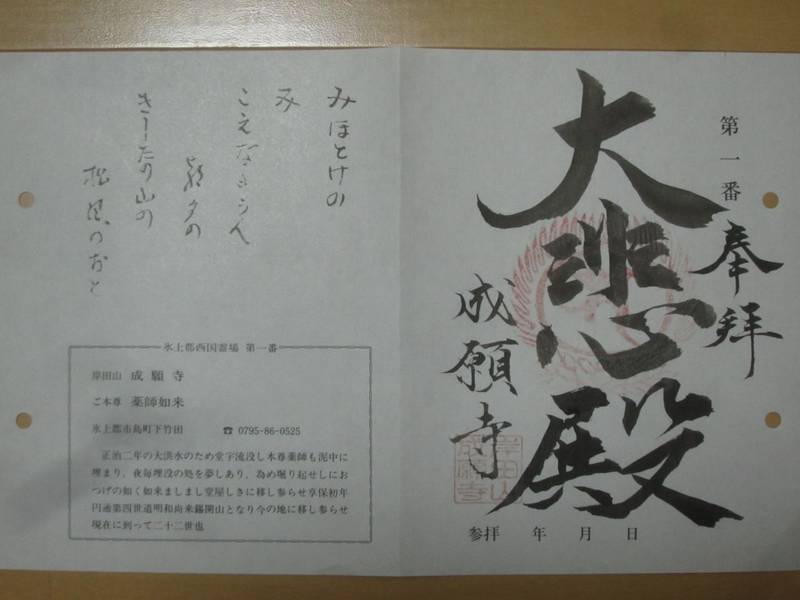 第一番
奉拝
大悲殿
成願寺
岸田山
成願寺
参拝 年 月 日
みほとけの
み
こえなるらん
朝夕の
きしたの山の
松風のおと
氷上郡西国霊場 第一番
岸田山 成願寺
ご本尊 薬師如来
氷上郡市島町下竹田 ☎ 0795-86-0525
正治二年の大洪水のため堂宇流没し本尊薬師も泥中に
埋まり、夜毎埋没の処を夢しあり、為め堀り起せしにお
つげの如く如来ましまし堂屋しきに移し参らせ享保初年
円通第四世道明和尚来錫開山となり今の地に移し参らせ
現在に到って二十二世也